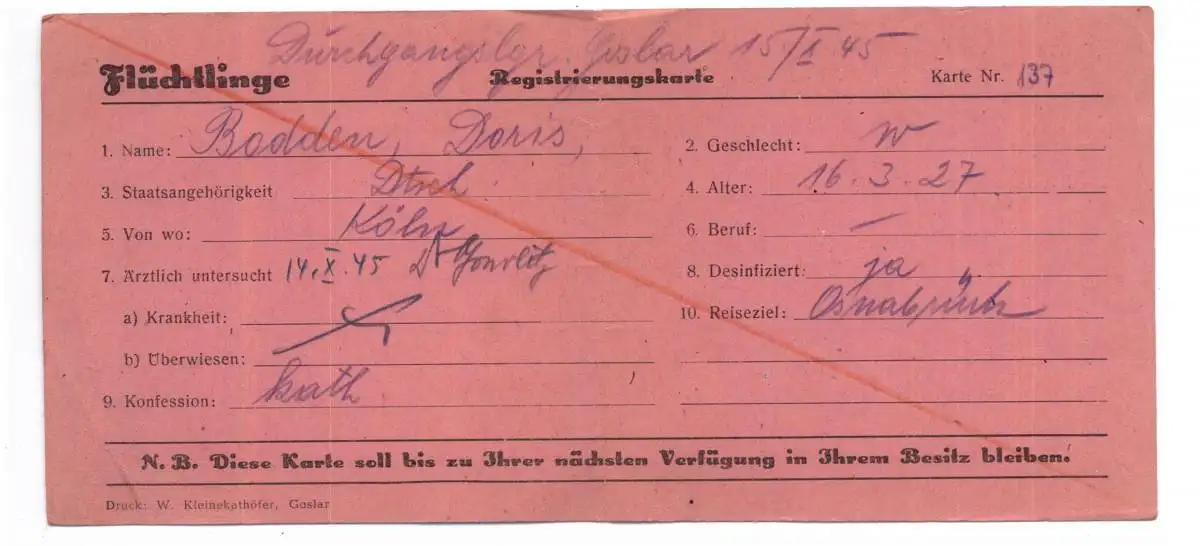 Durchgangslgr. Goslar 15/X 45
Flüchtlinge Registrierungskarte Karte Nr. 137
1. Name: Bodden, Doris, 2. Geschlecht: W
3. Staatsangehörigkeit Dtsch 4. Alter: 16.3.27
5. Von wo: Köln 6. Beruf: —
7. Ärztlich untersucht 14.X.45 Dr 8. Desinfiziert: ja
a) Krankheit: 10. Reiseziel: Osnabrück
b) Überwiesen:
9. Konfession: kath
N. B. Diese Karte soll bis zu Ihrer nächsten Verfügung in Ihrem Besitz bleiben.
Druck: W. Kleinekathöfer, Goslar